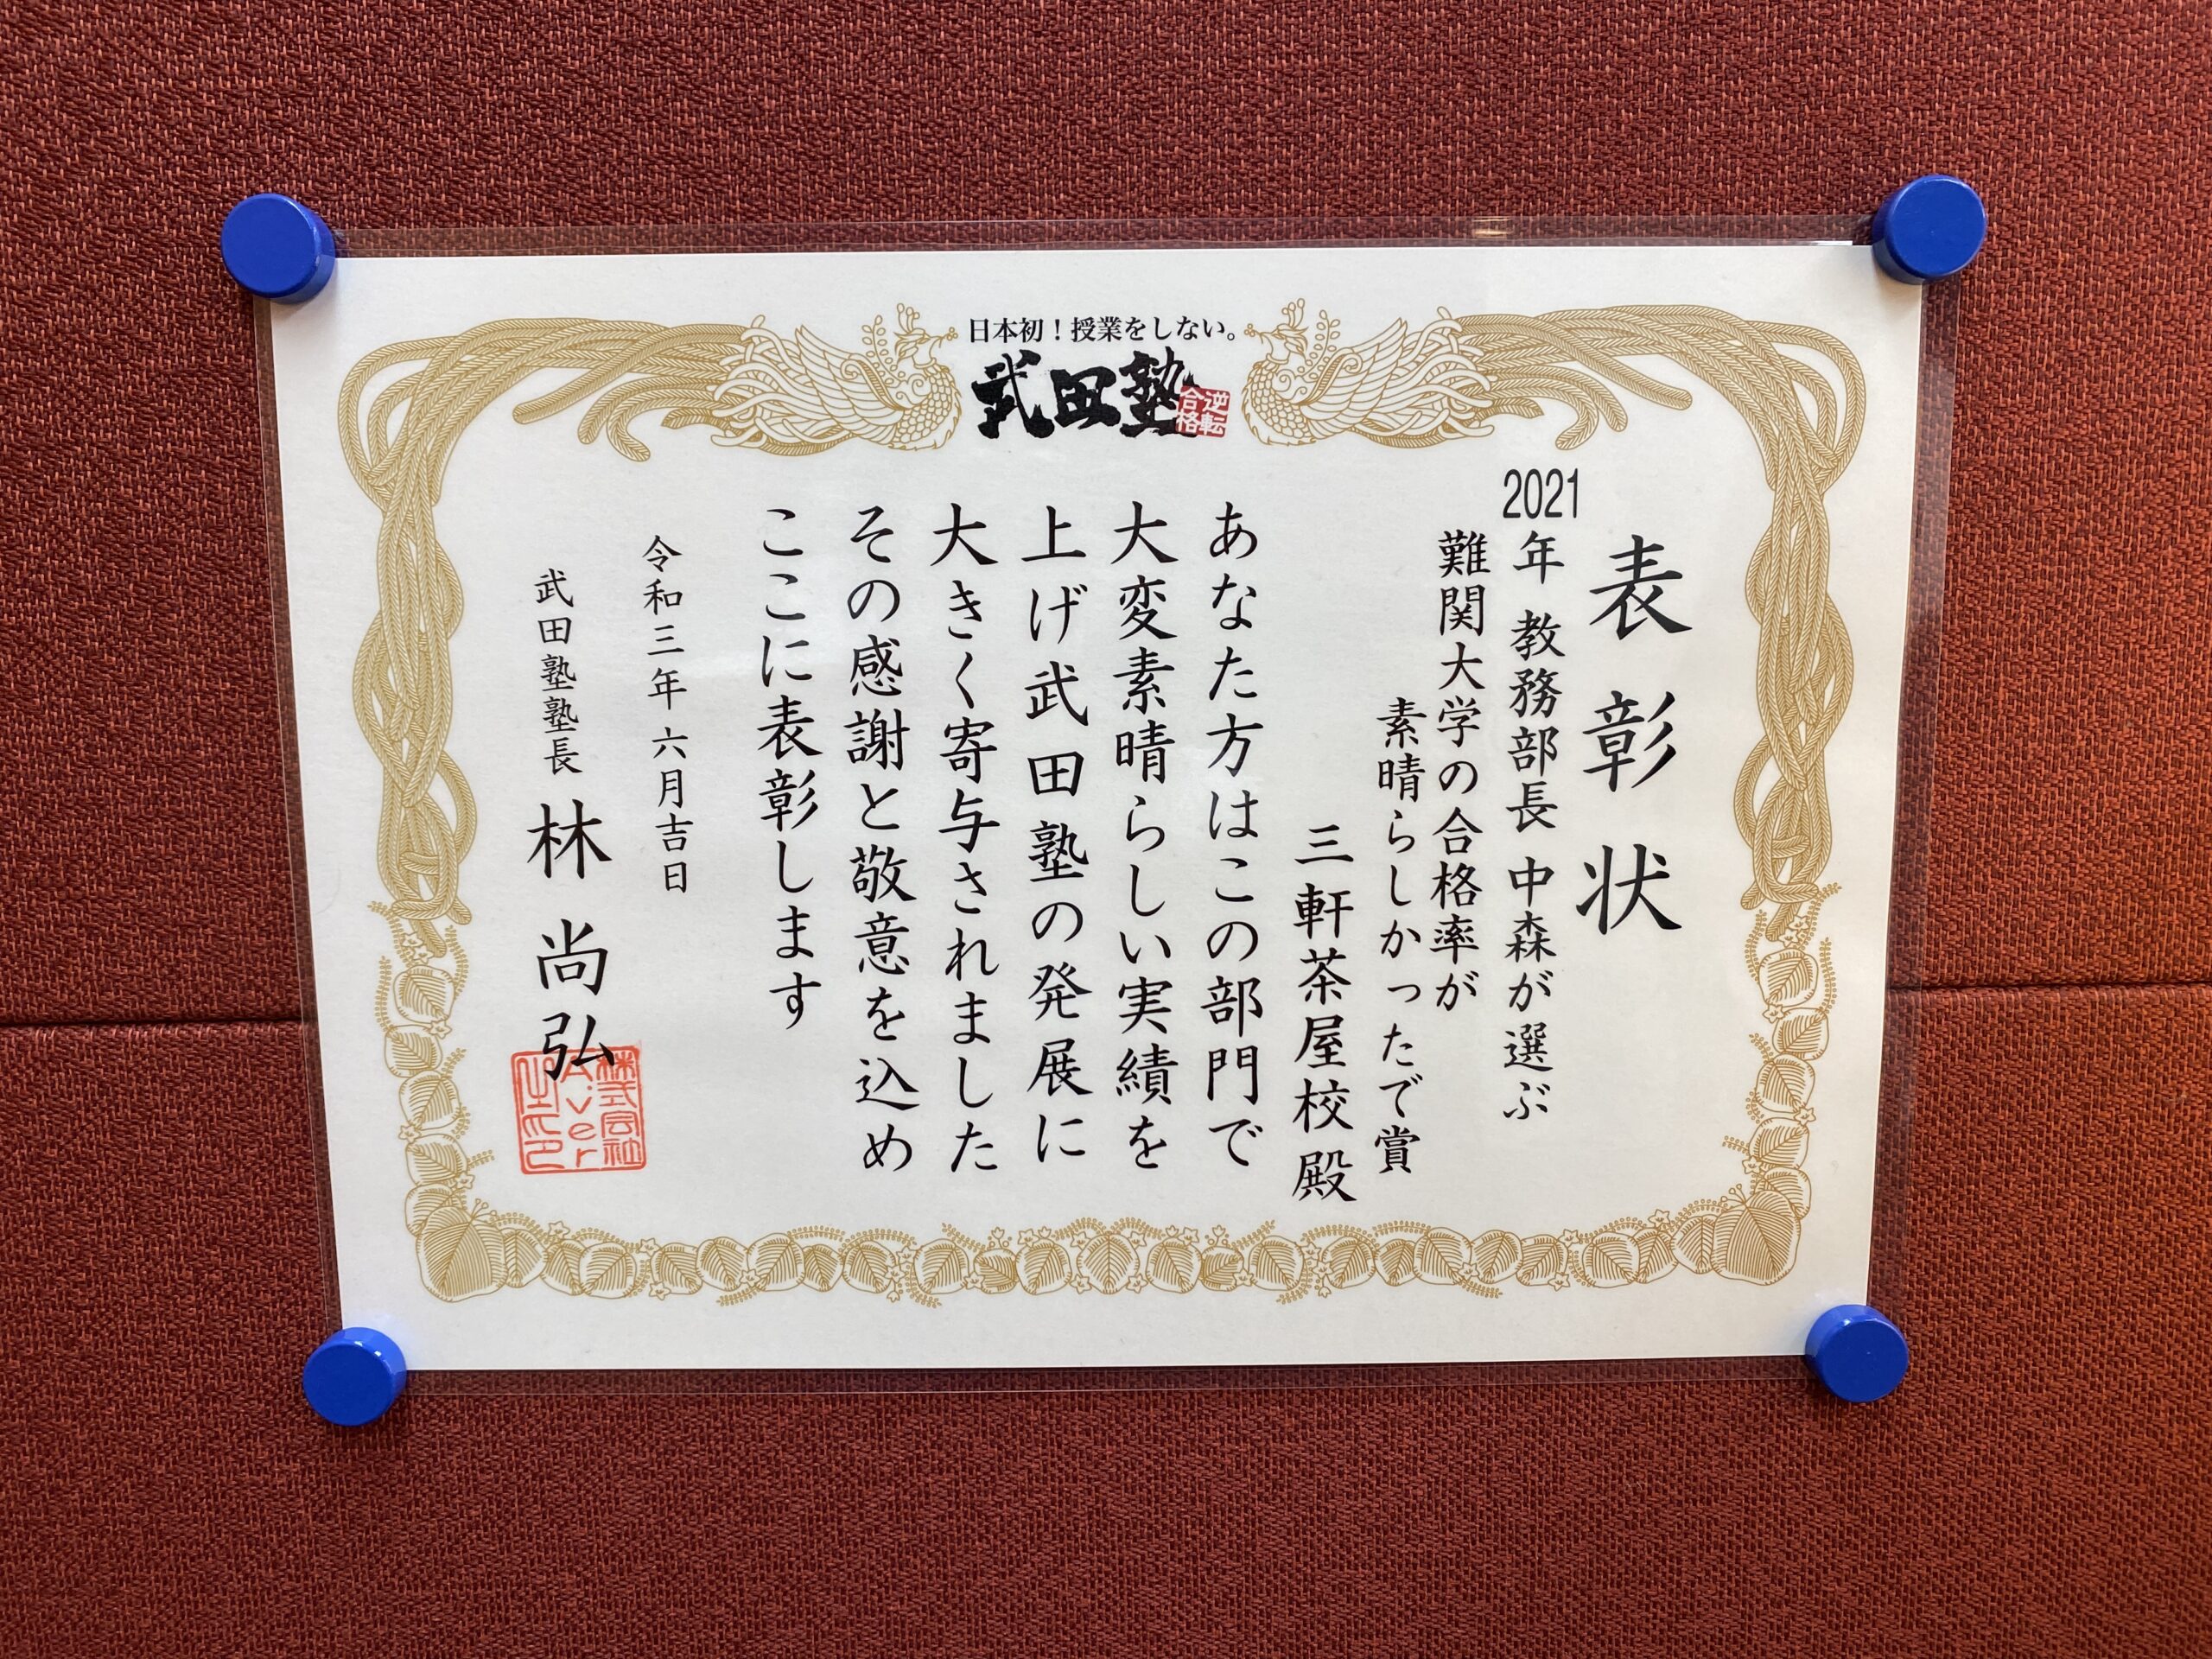 日本初！授業をしない。
武田塾
逆転
合格
表彰状
2021年 教務部長 中森が選ぶ
難関大学の合格率が
素晴らしかったで賞
三軒茶屋校 殿
あなた方はこの部門で
大変素晴らしい実績を
上げ武田塾の発展に
大きく寄与されました
その感謝と敬意を込め
ここに表彰します
令和三年 六月吉日
武田塾塾長 林 尚弘
株式会社
A.ver
之印